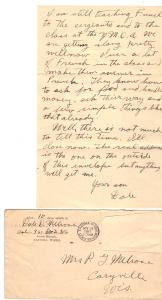 I am still teaching French
to the sergeants and to the
class at the Y.M.C.A. We
are getting along pretty
well now. I have a lot
of French in the class and
make them answer in
French. They know how
to ask for food and handle
money, ask their way and
a few simple things like
that already.
Well, there is not much
to tell this time. I'll
close now. The real address
is the one on the outside
of this envelope but anything
will get me.
Your son
Dale
Dale D. Melrose
Mrs R F Melrose
Caryville
Wis.